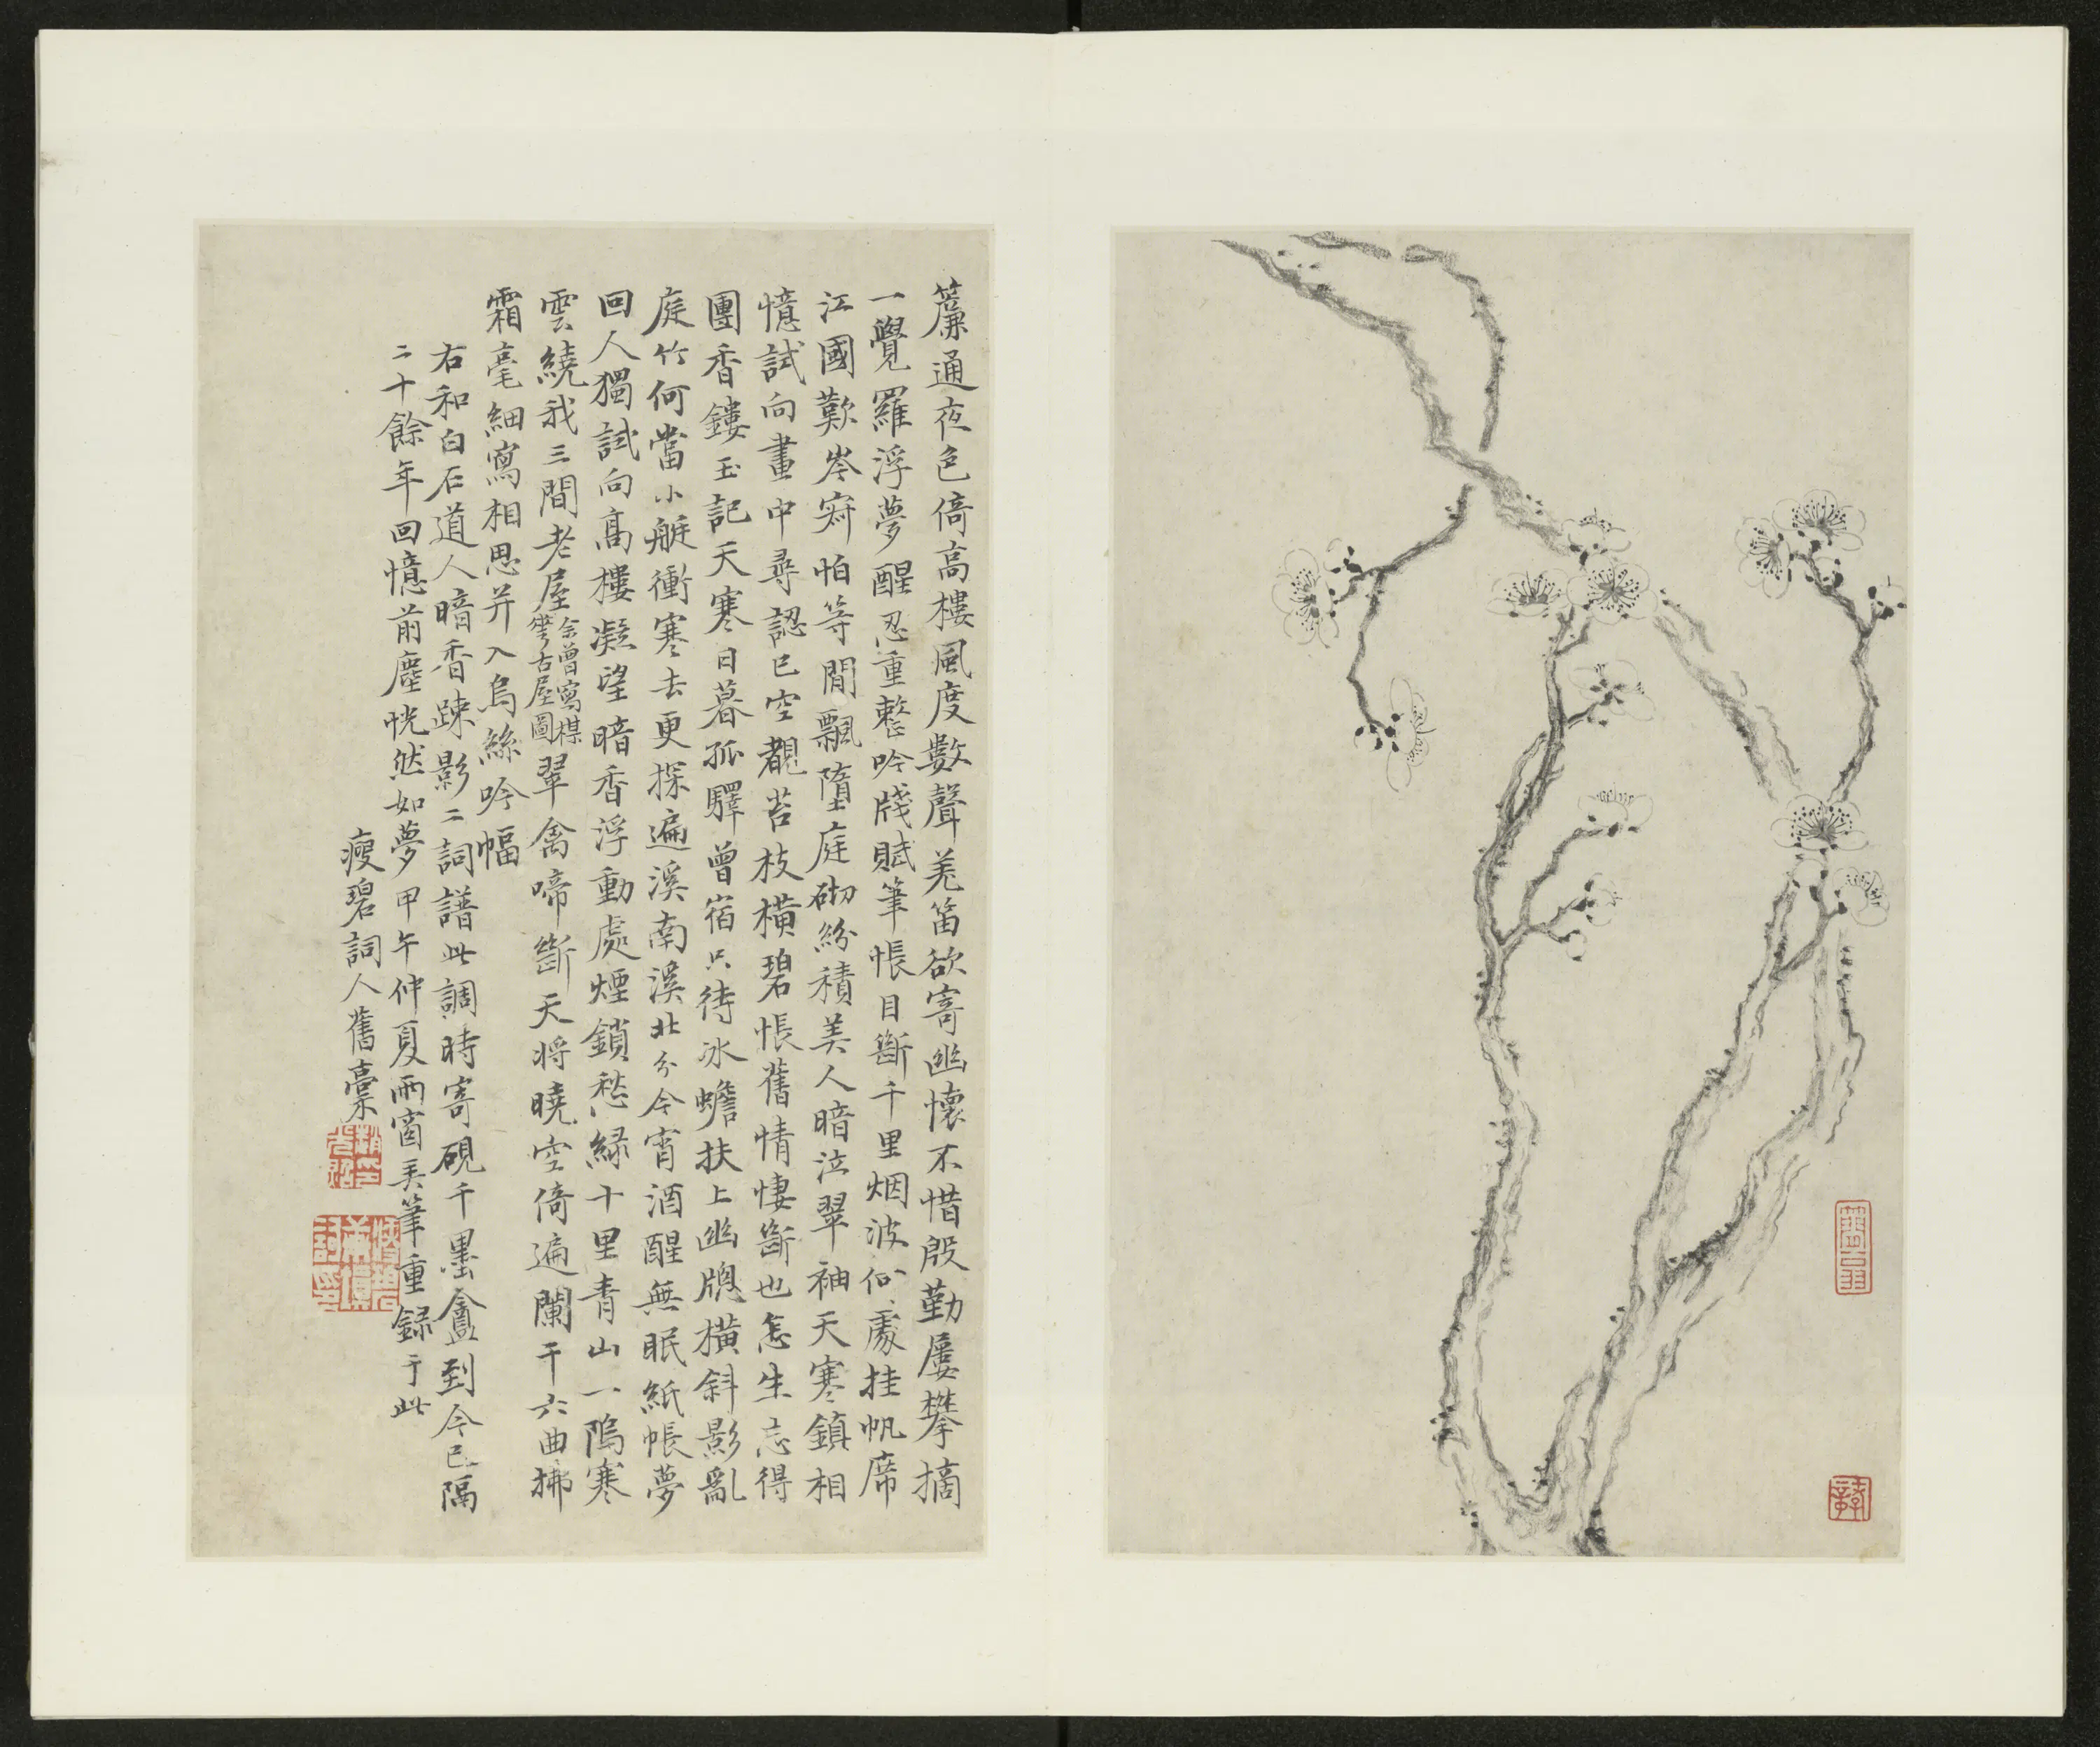 簾通夜色倚高樓風度數聲羌笛欲寄幽懷不惜殷勤屢攀摘
一覺羅浮夢醒忍重整吟牋賦筆悵目斷千里烟波何處挂帆席
江國歎岑寂怕等閒飄墮庭砌紛積美人暗泣翠袖天寒鎮相
憶試向畫中尋認已空覩苔枝橫碧悵舊情悽斷也怎生忘得
團香鏤玉記天寒日暮孤驛曾宿只待冰蟾扶上幽牕橫斜影亂
庭竹何當小艇衝寒去更探遍溪南溪北兮今宵酒醒無眠紙帳夢
回人獨試向高樓凝望暗香浮動處煙鎖愁綠十里青山一隖寒
雲繞我三間老屋余曾寫楳華古屋圖翠禽啼斷天將曉空倚遍闌干六曲拂
霜毫細寫相思并入烏絲吟幅
右和白石道人暗香疎影二詞譜此調時寄硯千墨盦到今已隔
二十餘年回憶前塵恍然如夢甲午仲夏雨窗呵筆重録于此
瘦碧詞人舊稾